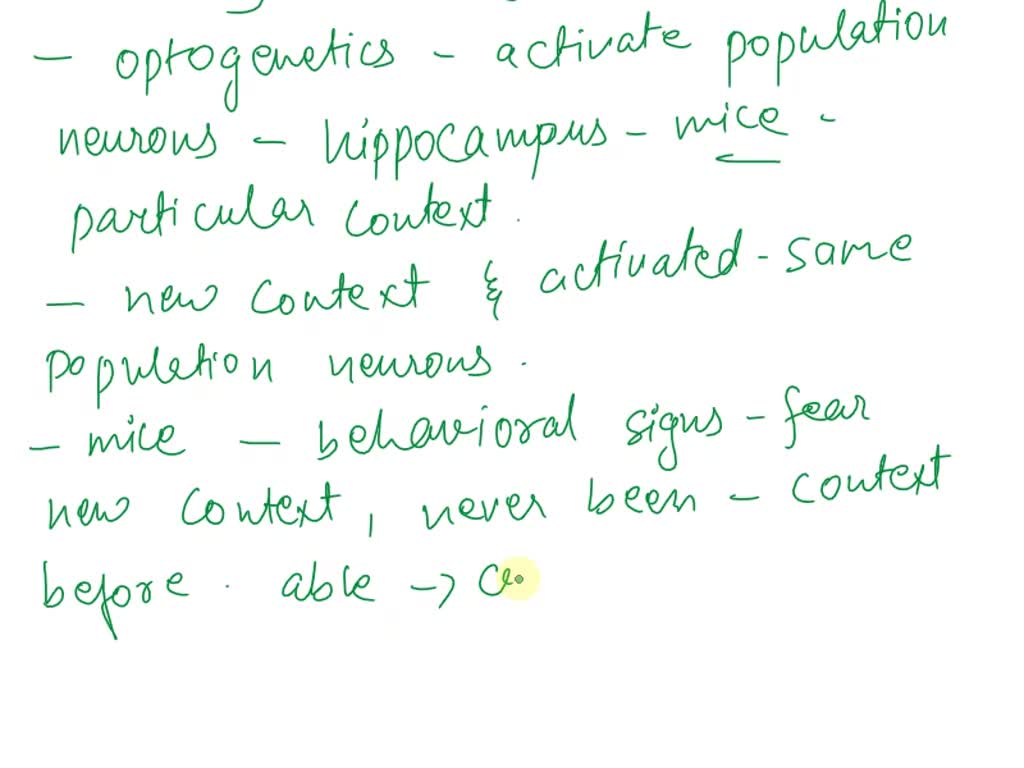 - optogenetics - activate population
neurons - hippocampus - mice -
particular context.
- new context & activated - same
population neurons.
- mice - behavioral signs - fear
new context, never been - context
before. able ->